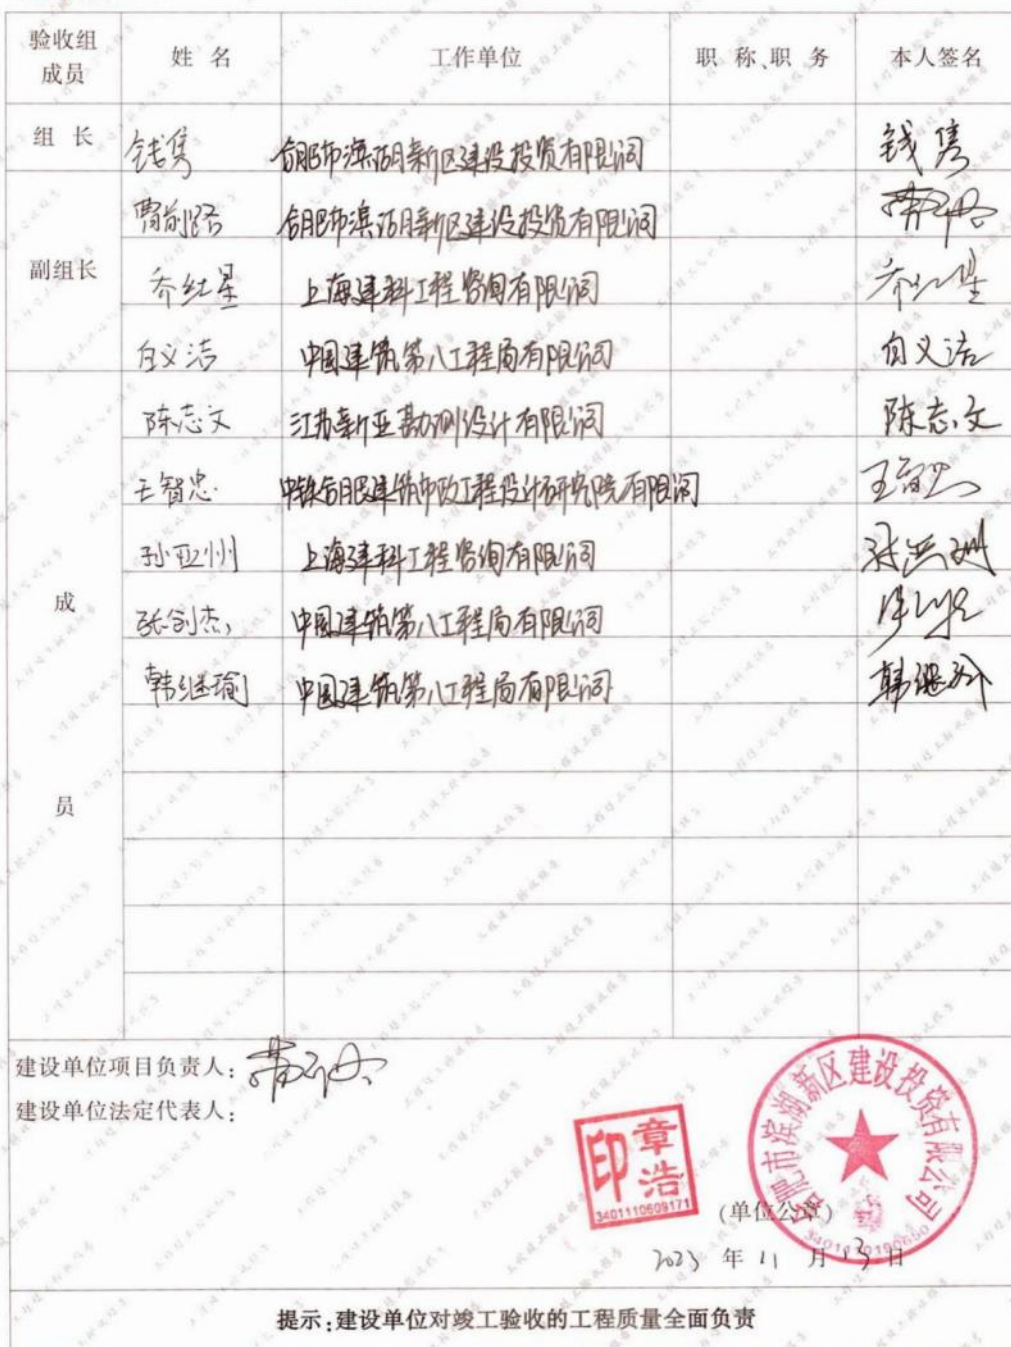 验收组成员 姓 名 工作单位 职 称、职 务 本人签名
组 长 钱隽 合肥市滨湖新区建设投资有限公司 钱隽
合肥市滨湖新区建设投资有限公司
副组长 乔红星 上海建科工程咨询有限公司 乔红星
白义洁 中国建筑第八工程局有限公司 白义洁
陈志文 江苏新亚勘测设计有限公司 陈志文
王智忠 中铁合肥建筑市政工程设计研究院有限公司
孙亚州 上海建科工程咨询有限公司
张剑杰 中国建筑第八工程局有限公司
韩继瑜 中国建筑第八工程局有限公司 韩继
成
员
建设单位项目负责人:
建设单位法定代表人:
章浩印
3401110609171
合肥市滨湖新区建设投资有限公司
3401110190650
(单位公章)
2023 年 11 月 13 日
提示:建设单位对竣工验收的工程质量全面负责
工程竣工验收报告